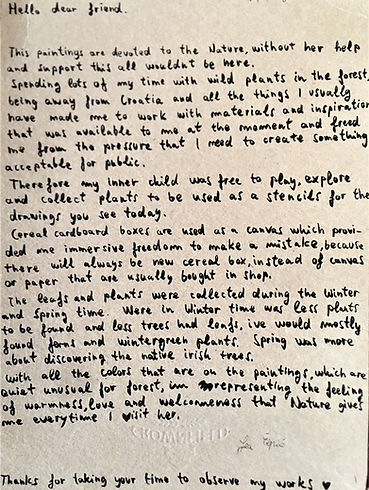 Hello dear friend.
This paintings are devoted to the Nature, without her help
and support this all wouldnt be here.
Spending lots of my time with wild plants in the forest,
being away from Croatia and all the things I usually
have made me to work with materials and inspiration
that was available to me at the moment and freed
me from the pressure that I need to create something
acceptable for public.
Therefore my inner child was free to play, explore
and collect plants to be used as a stencils for the
drawings you see today.
Cereal cardboard boxes are used as a canvas which provi-
ded me immersive freedom to make a mistake, because
there will always be new cereal box, instead of canvas
or paper that are usually bought in shop.
The leafs and plants were collected during the Winter
and Spring time. Were in Winter time was less plants
to be found and less trees had leafs, ive would mostly
found ferns and wintergreen plants. Spring was more
about discovering the native irish trees.
With all the colors that are on the paintings, which are
quiet unusual for forest, im representing the feeling
of warmness, love and welcomeness that Nature gives
me everytime I ♥isit her.
Thanks for taking your time to observe my works ♥